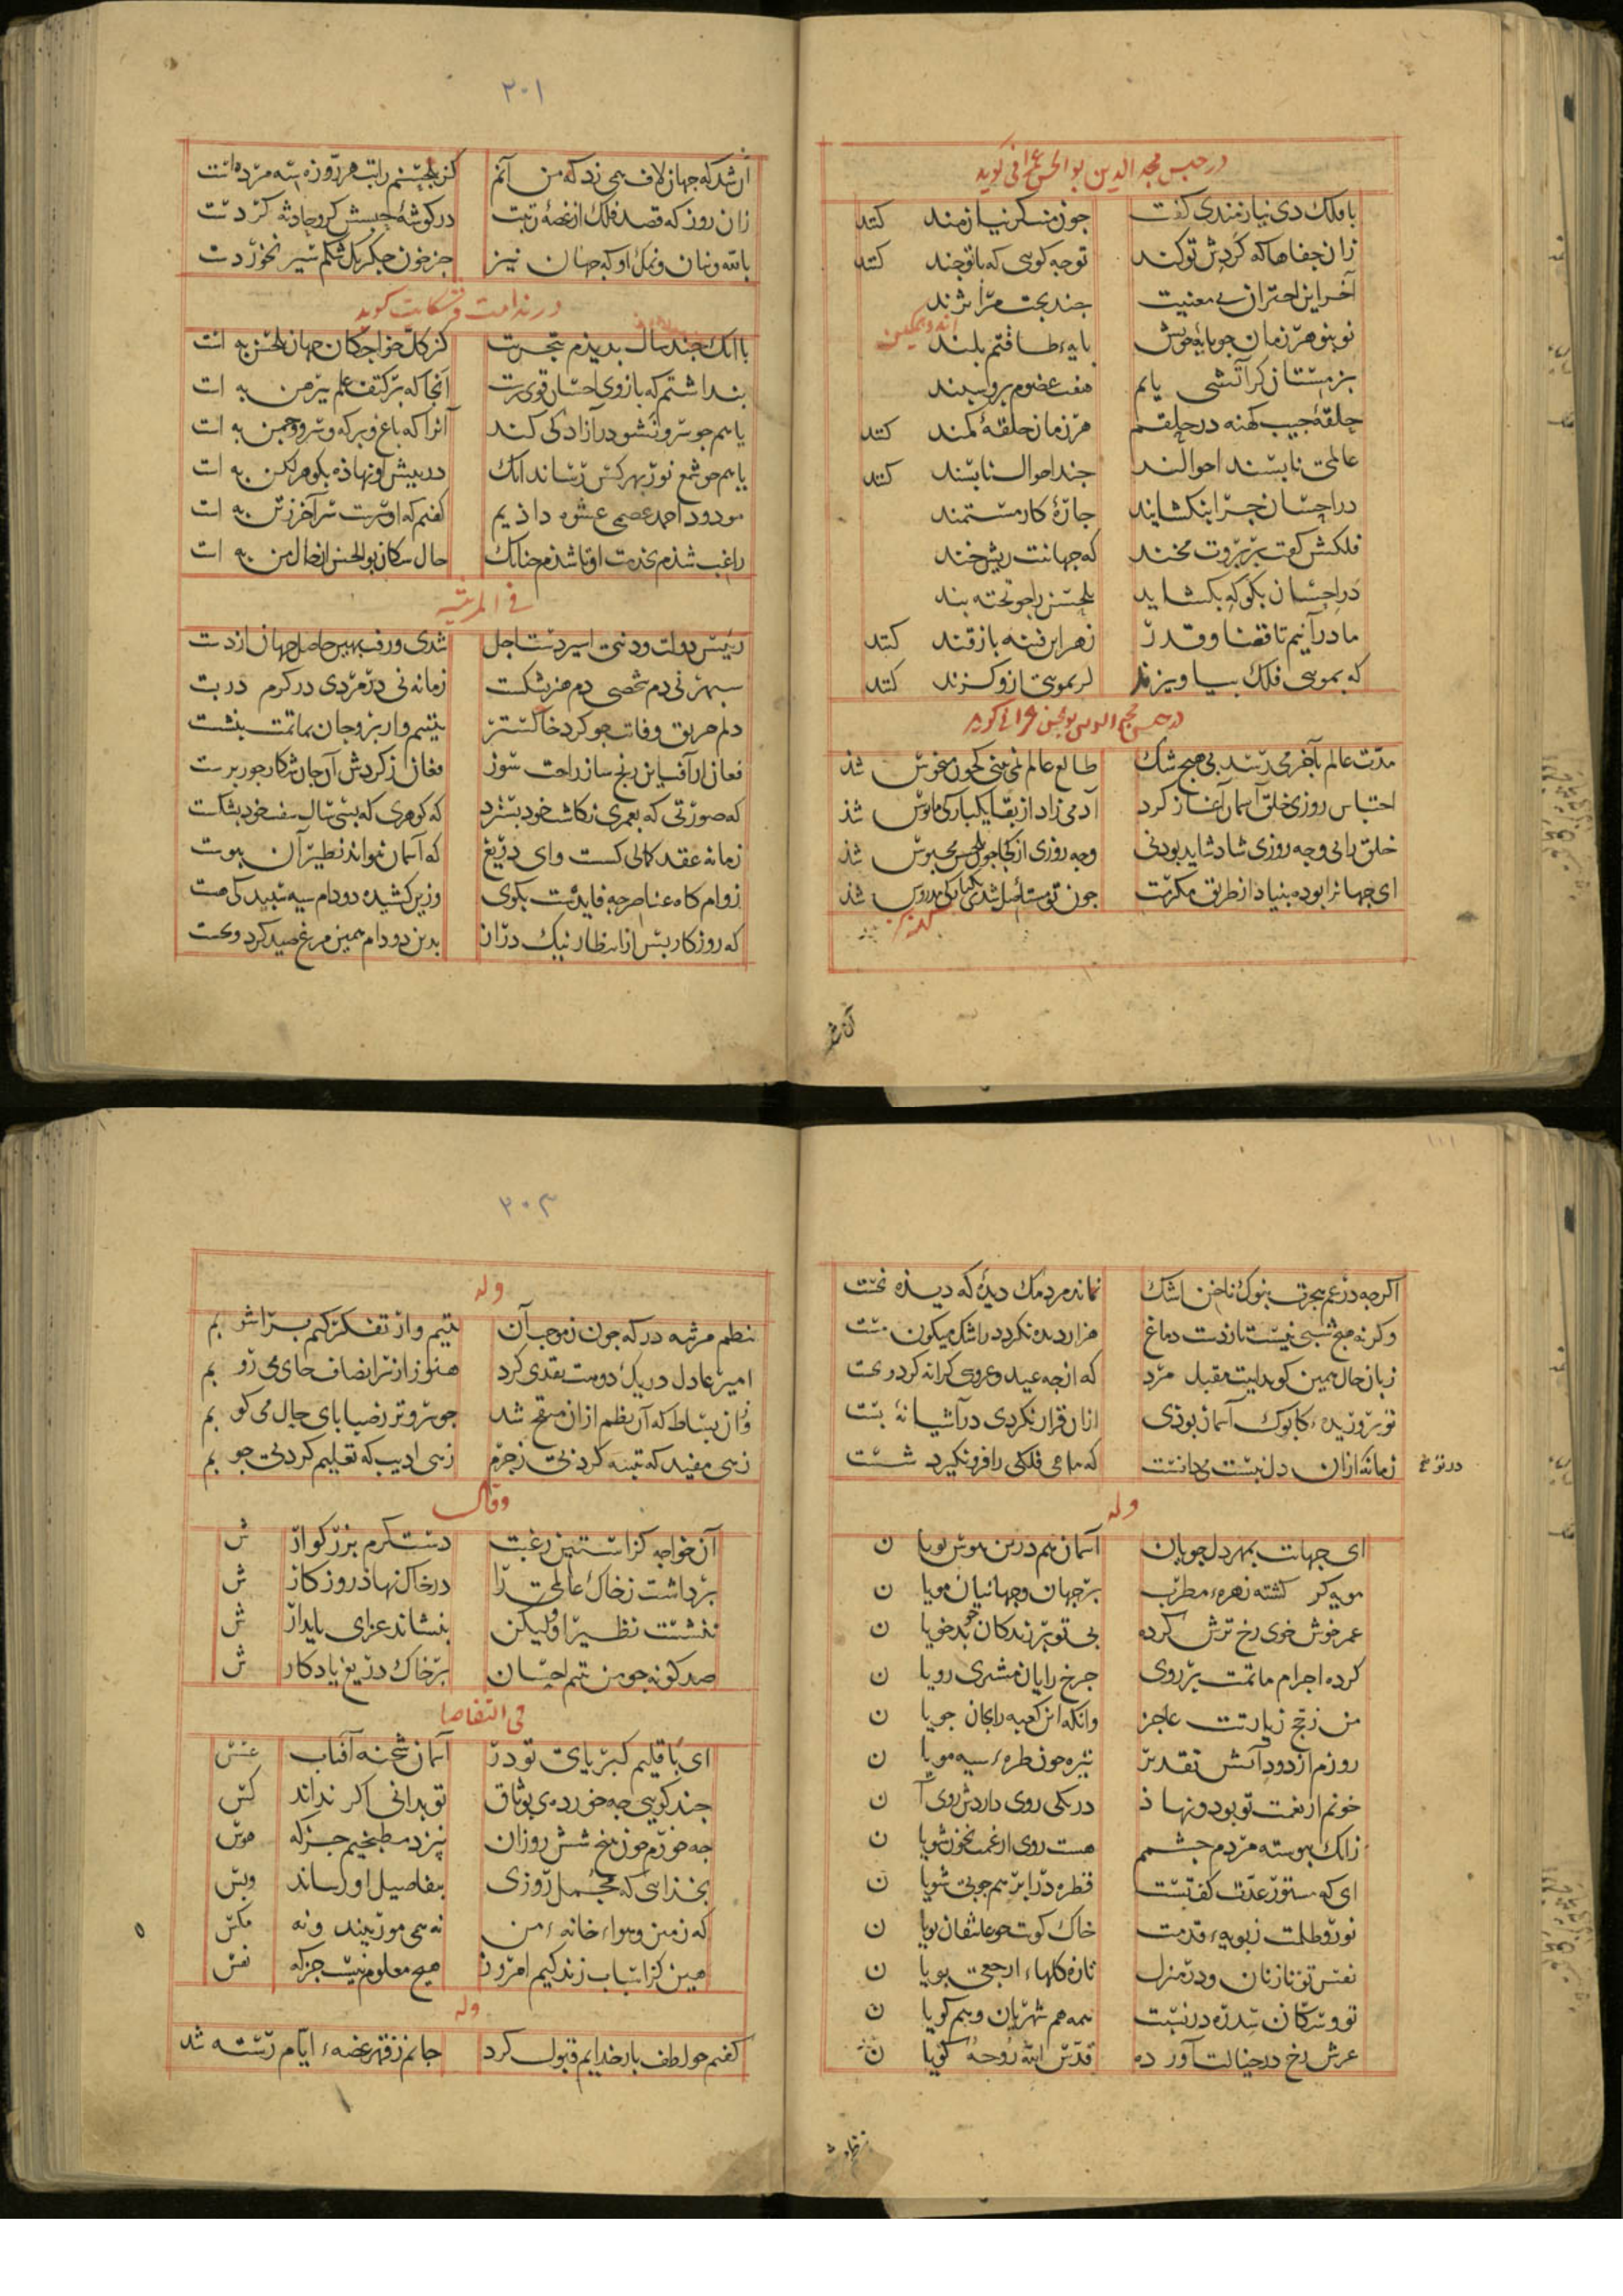 در حبس مجد الدین بو الحسن عمرانی گوید
با فلک دی نیازمندی کفت جون منی کر نیازمند کنند
زان جفاها که کردش تو کند توجه کویی که با توجند کنند
آخر این احتراز بی معنیت جند بخت مرا نژند
نو بنو هر زمان جو پایهٔ خویش پایهء طاقتم بلند
اندوهکین
بزمستان کر آتشی یابم هفت عضوم برو سپند
حلقهٔ جیب کهنه در حلقم هر زمان حلقهٔ کمند کنند
عالمی ناپسند احوالند جند احوال ناپسند کنند
در احسان جرا بنکشایند جارهٔ کار مستمند
فلکش کفت بر بروت مخند که جهانت ریش خند
در احسان بکو که بکشاید بلحسن را جو تخته بند
ما در آنیم تا قضا و قدر زهر این فتنه باز قند کنند
که بمویی فلک بیاویزند کر بمویی ازو کزند کنند
مدت عالم بآخر می رسد بی هیج شک طالع عالم نمی بینی که جون منحوس شذ
احتباس روزی خلق آسمان آغاز کرد آدمی زاد از بقا یکبارکی مایوس شذ
خلق را بی وجه روزی شاد شاید بودنی وجه روزی از کجا جون بلحسن محبوس شذ
ای جهانرا بوده بنیاد از طریق مکرمت جون تو مستأصل شدی یکبارکی مدروس شذ
آن شد
۳۰۱
آن شد که جهان لاف همی زد که من آنم کز بلحسنم راتب هر روزه سه مرده است
زان روز که قصد فلک از غصهٔ رتبت در کوشهٔ حبسش کرو حادثه کردست
بالله و بنان و نمک او که جهان نیز جز خون جکر یک شکم سیر نخوردست
در ندامت و شکایت کوید
با آنک جند سال بدیذم بتجربت کز کل خواجکان جهان بلحسن به است
بنداشتم که بازوی احسان قوی ترست آنجا که بر کتف علم پیرهن به است
یا سم جو سرو نشو در آزادکی کند آنرا که باغ و برکه و سرو و جمن به است
یا سم جو شمع نور بهر کس رساند آنک در پیش او نهاذه بکوهر لکن به است
مودود احمد عصمی عشوه داذیم کفتم که او ترست سر آخر زتن به است
راغب شذم بخدمت او تا شذم جنانک حال سکان بوالحسن از حال من به است
فی المرثیه
رئیس دولت و دنیی اسیر دست اجل شدی و رفت بهین حاصل جهان از دست
سپهر نی دم شخصی دم هنر بشکست زمانه نی در مردی در کرم دربست
دلم حریق وفات جو کرد خاکستر یتیم وار بر و جان بماتمت بنشست
فغان از آفت این رنج ساز راحت سوز فغان ز کردش آن جان شکار جور پرست
که صورتی که بعمری نکاشت خود بسترد که کوهری که بسی سال سفت خود بشکست
زمانه عقد کمالی کست وای دریغ که آسمان نتواند نظیر آن پیوست
ز وام کاه عناصر جه فایدست بکوی وزین کشیده دو دام سیه سپید کی هست
که روزکار پس از انتظار نیک دراز بدین دو دام همین مرغ صید کرد و بجست
اکرجه در غم هجرت بنوک ناخن اشک نماند مردمک دیده که دیذه نخست
وکرنه هیج شبی نیست تا ز دست دماغ هزار دیده نکردد ز اشک میکون مست
زبان حال همین کوید ایت مقبل مرد که از جه عید و عروسی کرانه کرد و بجست
تو بر وزیدهء کابوک آسمان بوذی ازان قرار نکردی در آشیانهٔ بست
زمانه ازان دل نبست می دانست که ماهی فلکی را فرو نکیرد شست
وله
ای جهانت بمهر دل جویان آسمان هم درین هوس پویا ن
مویه کر کشته زهرهء مطرب بر جهان و جهانیان مویا ن
عمر خوش خوی رخ ترش کرده بی تو بر زندکان جو بد خویا ن
کرده اجرام ماتمت بر روی جرخ را پایان مشتری رویا ن
من ز حج زیارتت عاجز وانکه این کعبه را بجان جویا ن
روزم از دود آتش تقدیر تیره جون طرهء سیه مویا ن
خونم از نعمت تو بود و نهاذ در یکی روی دارش روی آ ن
زانک پیوسته مردم جشمم هست روی از غمت بخون شویا ن
ای که دستور عدت کف تست قطره در ابر هم جوبی شویا ن
نور و ظلمت ز بویهء قدمت خاک کویت جو عاشقان بویا ن
نفس تو تا زنان و در منزل تازه کلهاء ارجعی بویا ن
تو و سکان سدره در نسبت همه هم شهریان و هم کویا ن
عرش رخ در جنابت آورده قدس الله روحهٔ کویا ن
۳۰۳
وله
بنظم مرثیه در که جون ز موجب آن یتیم وار تفکر کنم بسر اشو بم
امیر عادل در یک دو بیت نقدی کرد هنوز از سر انصاف جای می رو بم
وزان بساط که آن نظم ازان مبرقع شد جو سرو تر ز صبا پای جال می کو بم
زهی مفید که تنبیه کرد بی زجرم زهی ادیب که تعلیم کرد بی جو بم
وقال
آن خواجه کز آستین رغبت دست کرم بزرکوار ش
برداشت ز خاک عالمی را در خاک نهاذ روزکار ش
ننشست نظیر او ولیکن بنشاند عزای پایدار ش
صد کونه جو من یتیم احسان بر خاک دریغ یادکار ش
فی التقاضا
ای باقلیم کبریای تو در آسمان شحنه آفتاب عسس
جند کویی جه خورده ی بوثاق تو بدانی اکر نداند کس
جه خورم خون میخ شش روزان نپزد مطبخیم جز که هوس
بخذایی که مجمل روزی بتفاصیل او رساند وبس
که زمین و هواء خانهء من نه همی مور بیند و نه مکس
هین کز اسباب زندکیم امروز هیج معلوم نیست جز که نفس
وله
کفتم جو لطف بار خدایم قبول کرد جانم ز قهر غصهء ایام رسته شد